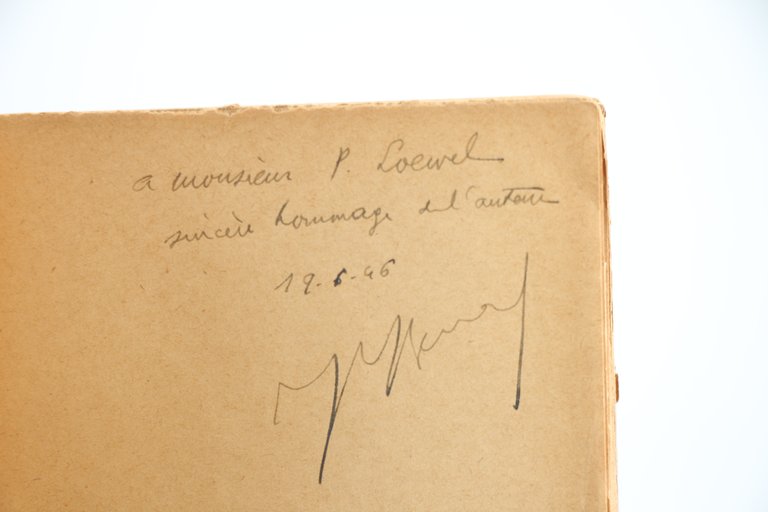 a monsieur P. Loewel
sincère hommage de l'auteur
19-6-46